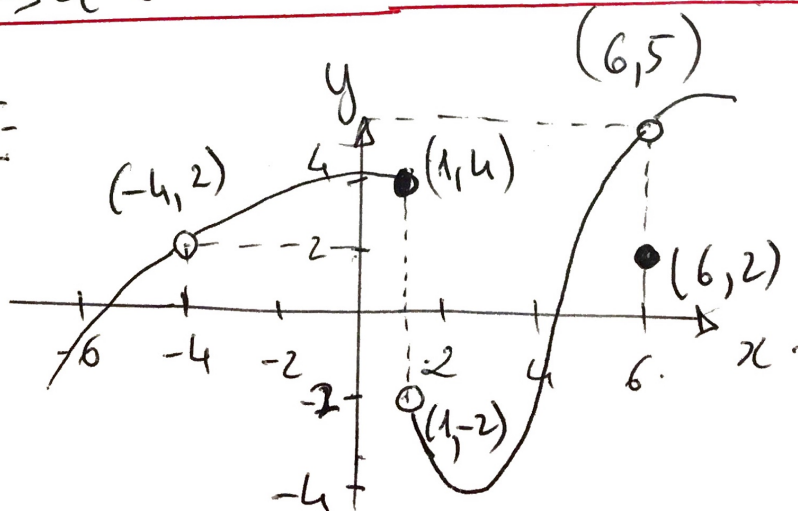 (6,5)
y
4
(1,4)
(-4,2)
2
(6,2)
-6 -4 -2 2 4 6 x
-2
(1,-2)
-4